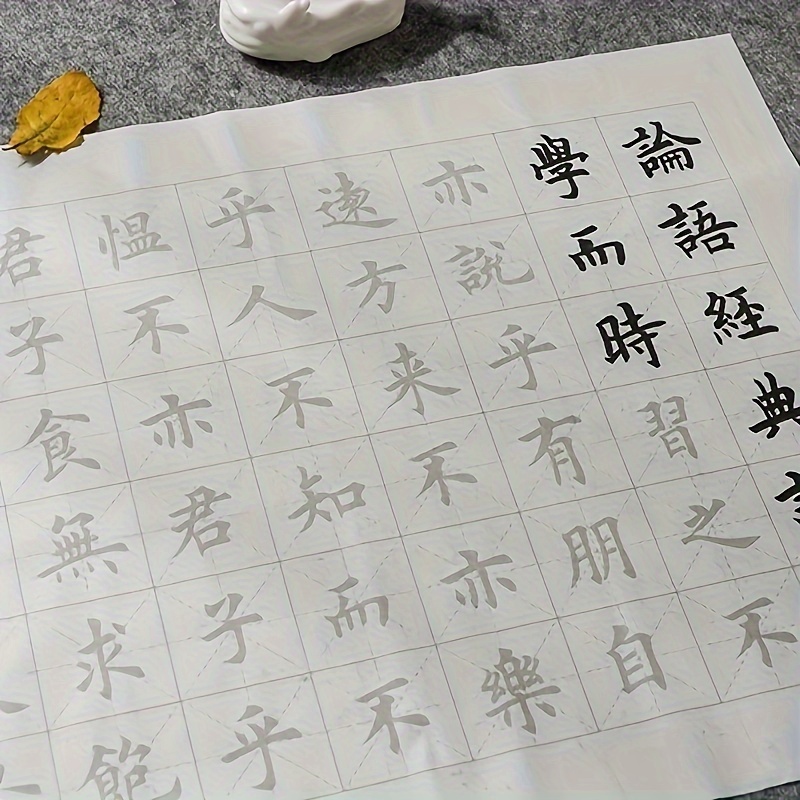 論語經典
學而時習之不
亦說乎有朋自
遠方来不亦樂
乎人不知而不
愠不亦君子乎
君子食無求飽